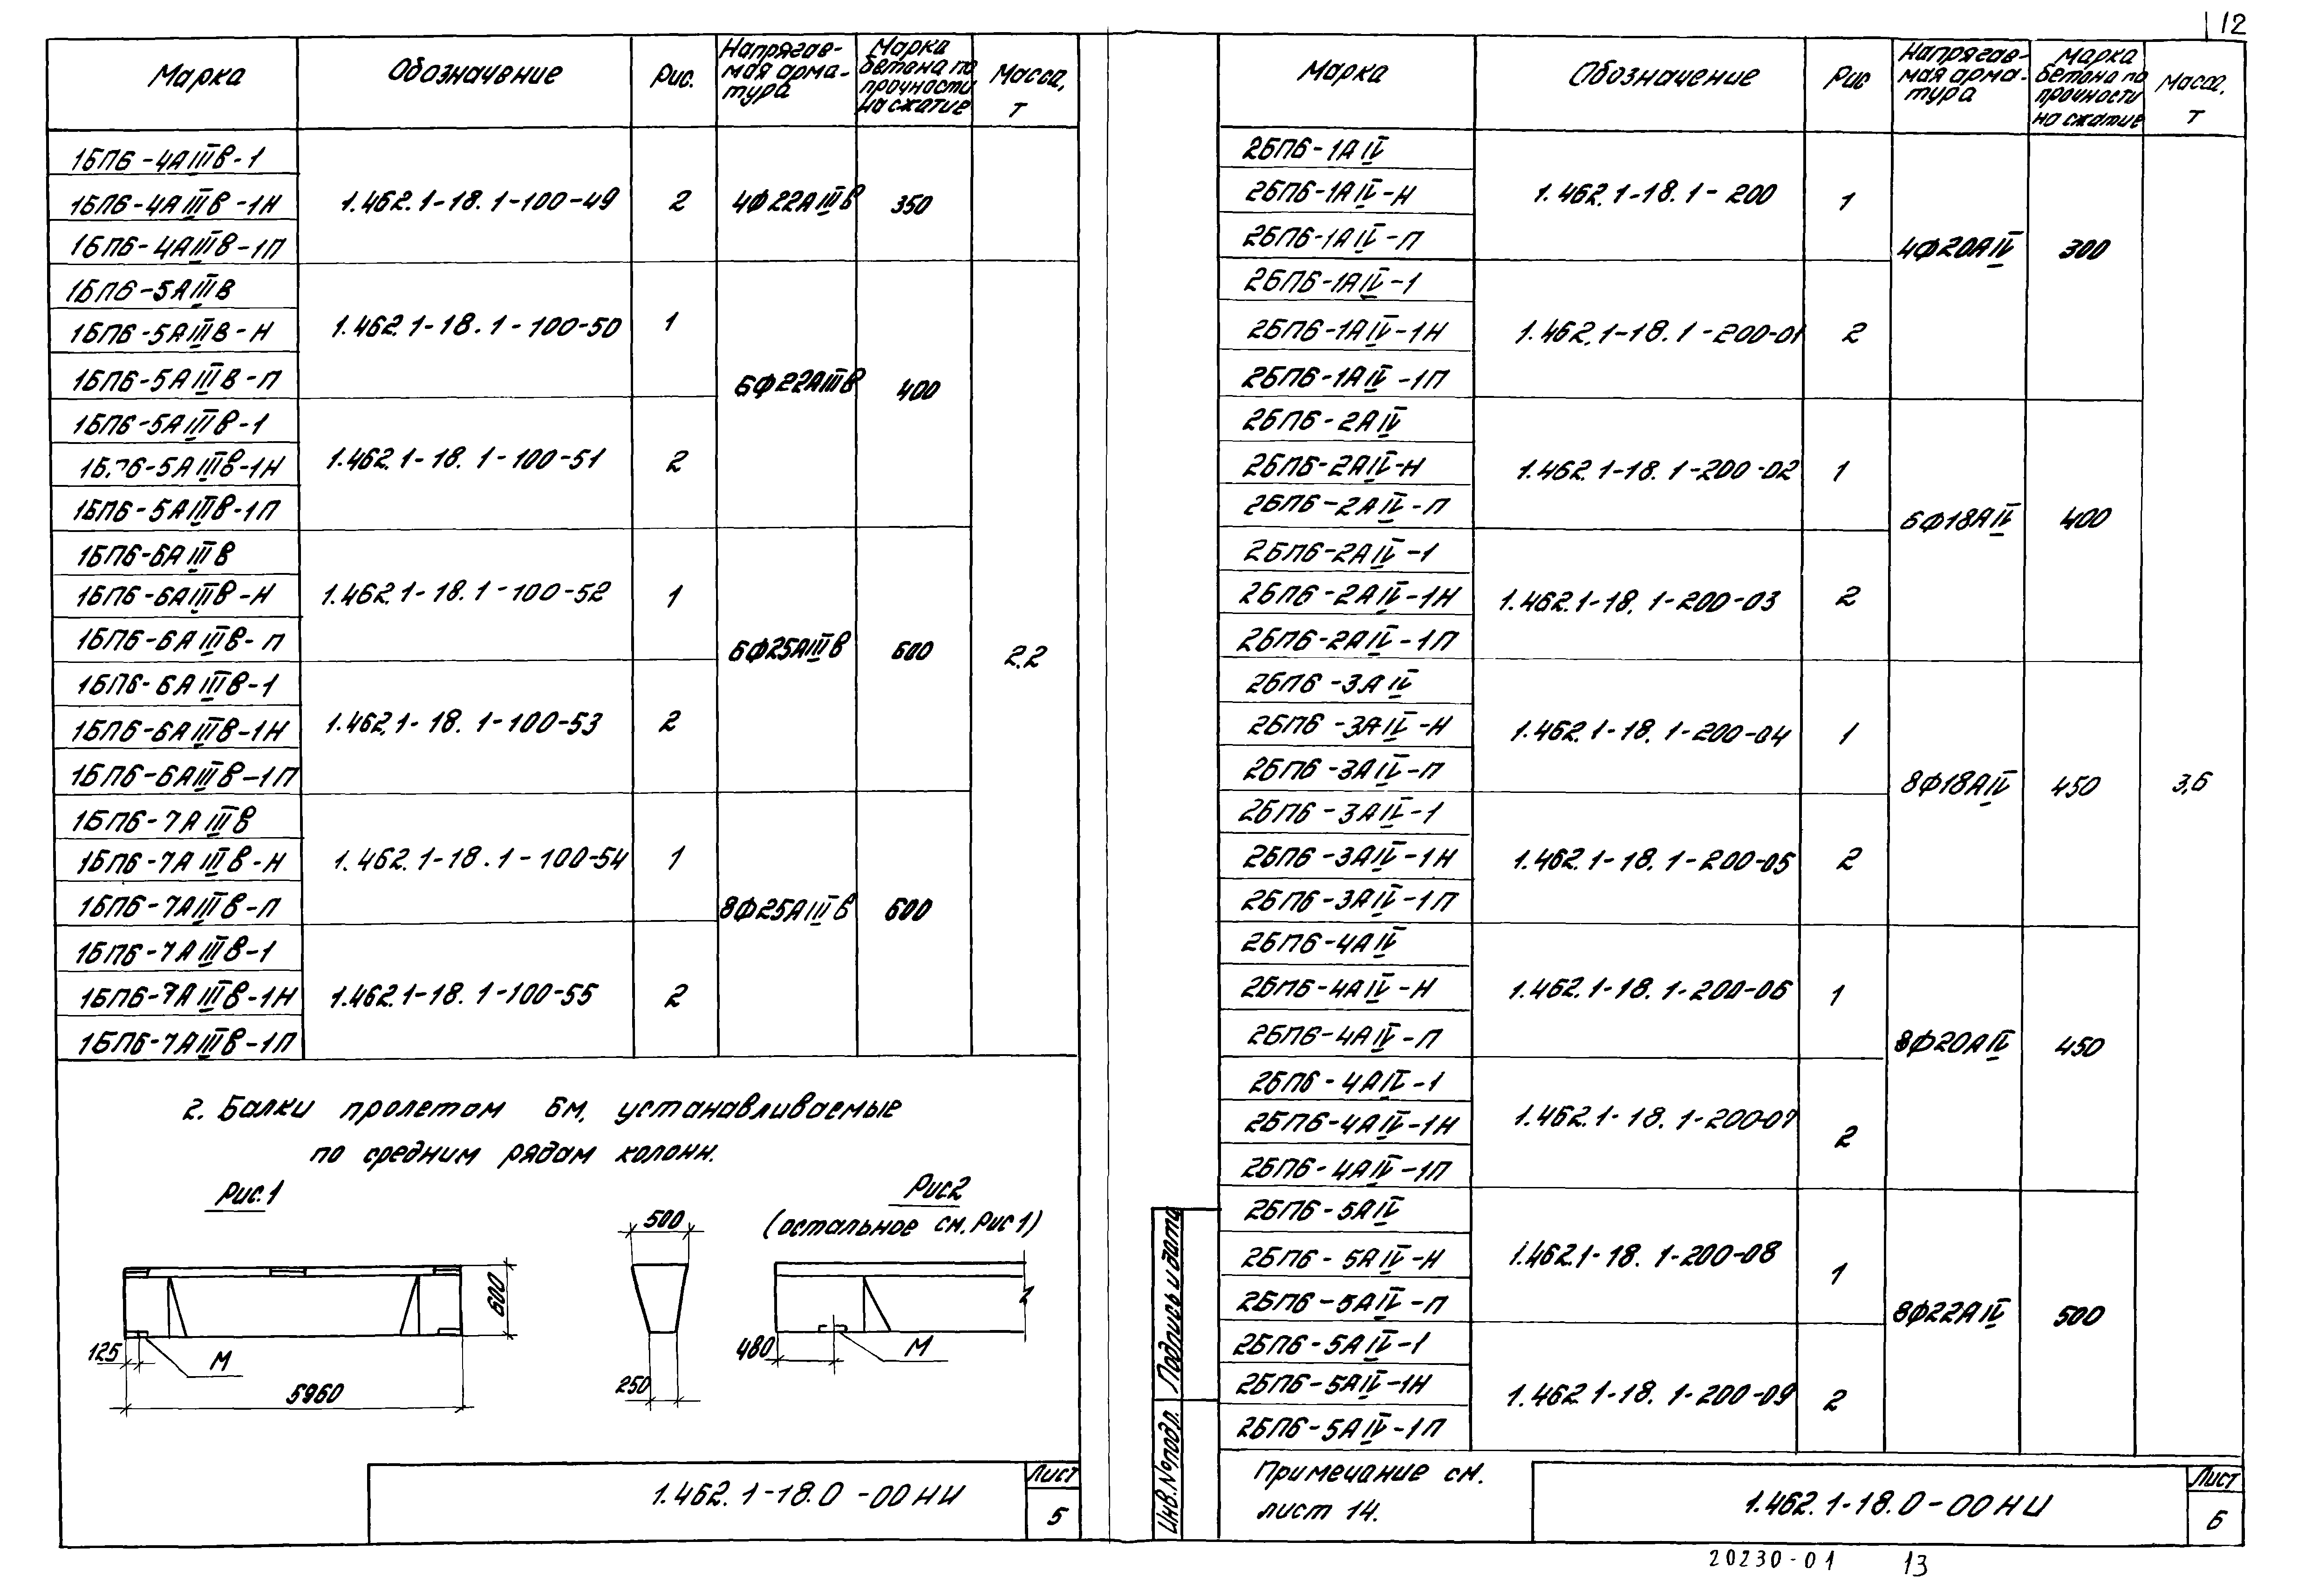 12
Марка Обозначение Рис. Напрягае- Марка Масса,
мая арма- бетона по т
тура прочности
на сжатие
1БП6-4АIIIв-1
1БП6-4АIIIв-1Н 1.462.1-18.1-100-49 2 4ф22АIIIв 350
1БП6-4АIIIв-1П
1БП6-5АIIIв
1БП6-5АIIIв-Н 1.462.1-18.1-100-50 1
1БП6-5АIIIв-П 6ф22АIIIв 400
1БП6-5АIIIв-1
1Б.П6-5АIIIв-1Н 1.462.1-18.1-100-51 2
1БП6-5АIIIв-1П
1БП6-6АIIIв
1БП6-6АIIIв-Н 1.462.1-18.1-100-52 1
1БП6-6АIIIв-П 6ф25АIIIв 600 2.2
1БП6-6АIIIв-1
1БП6-6АIIIв-1Н 1.462.1-18.1-100-53 2
1БП6-6АIIIв-1П
1БП6-7АIIIв
1БП6-7АIIIв-Н 1.462.1-18.1-100-54 1
1БП6-7АIIIв-П 8ф25АIIIв 600
1БП6-7АIIIв-1
1БП6-7АIIIв-1Н 1.462.1-18.1-100-55 2
1БП6-7АIIIв-1П
2. Балки пролетом 6м, устанавливаемые
по средним рядам колонн.
Рис.1
Рис2
(остальное см. Рис 1)
500
600
125
М
5960
250
480
М
1.462.1-18.0-00НИ
Лист
5
Марка Обозначение Рис Напрягае- Марка Масса,
мая арма- бетона по т
тура прочности
на сжатие
2БП6-1АIV
2БП6-1АIV-Н 1.462.1-18.1-200 1
2БП6-1АIV-П 4ф20АIV 300
2БП6-1АIV-1
2БП6-1АIV-1Н 1.462.1-18.1-200-01 2
2БП6-1АIV-1П
2БП6-2АIV
2БП6-2АIV-Н 1.462.1-18.1-200-02 1
2БП6-2АIV-П 6ф18АIV 400
2БП6-2АIV-1
2БП6-2АIV-1Н 1.462.1-18.1-200-03 2
2БП6-2АIV-1П
2БП6-3АIV
2БП6-3АIV-Н 1.462.1-18.1-200-04 1
2БП6-3АIV-П 8ф18АIV 450 3,6
2БП6-3АIV-1
2БП6-3АIV-1Н 1.462.1-18.1-200-05 2
2БП6-3АIV-1П
2БП6-4АIV
2БП6-4АIV-Н 1.462.1-18.1-200-06 1
2БП6-4АIV-П 8ф20АIV 450
2БП6-4АIV-1
2БП6-4АIV-1Н 1.462.1-18.1-200-07 2
2БП6-4АIV-1П
2БП6-5АIV
2БП6-5АIV-Н 1.462.1-18.1-200-08 1
2БП6-5АIV-П 8ф22АIV 500
2БП6-5АIV-1
2БП6-5АIV-1Н 1.462.1-18.1-200-09 2
2БП6-5АIV-1П
Подпись и дата
Инв.№подл.
Примечание см.
лист 14.
1.462.1-18.0-00НИ
Лист
6
20230-01 13